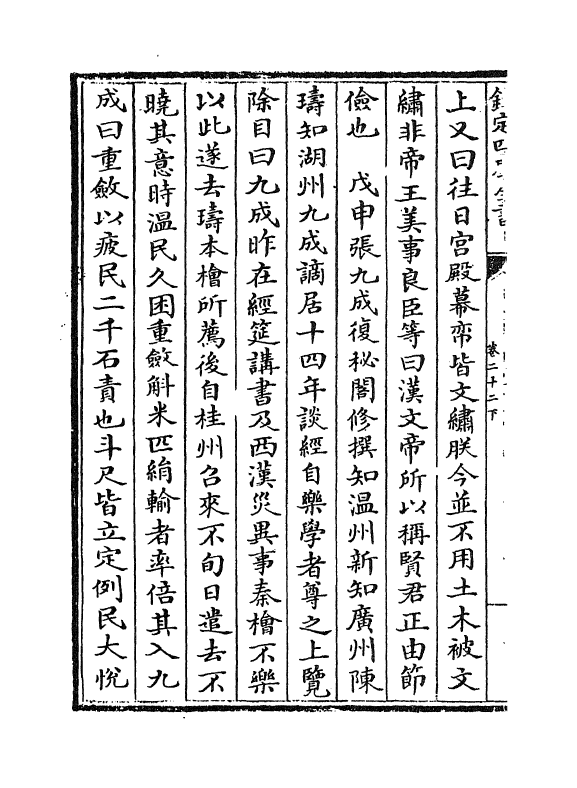 欽定四庫全書
卷二十二下
上又曰往日宫殿幕帟皆文繡朕今並不用土木被文
繡非帝王美事良臣等曰漢文帝所以稱賢君正由節
儉也　戊申張九成復秘閣修撰知温州新知廣州陳
璹知湖州九成謫居十四年談經自樂學者尊之上覽
除目曰九成昨在經筵講書及西漢災異事秦檜不樂
以此遂去璹本檜所薦後自桂州召來不旬日遣去不
曉其意時温民久困重斂斛米匹絹輸者率倍其入九
成曰重斂以疲民二千石責也斗尺皆立定例民大悅